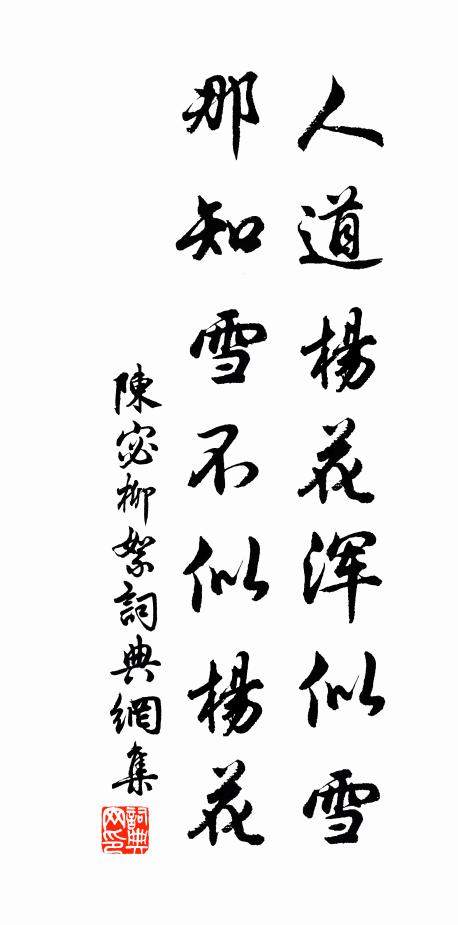 人道楊花浑似雪
那知雪不似楊花
陳宓柳絮詞典網集
詞典网印